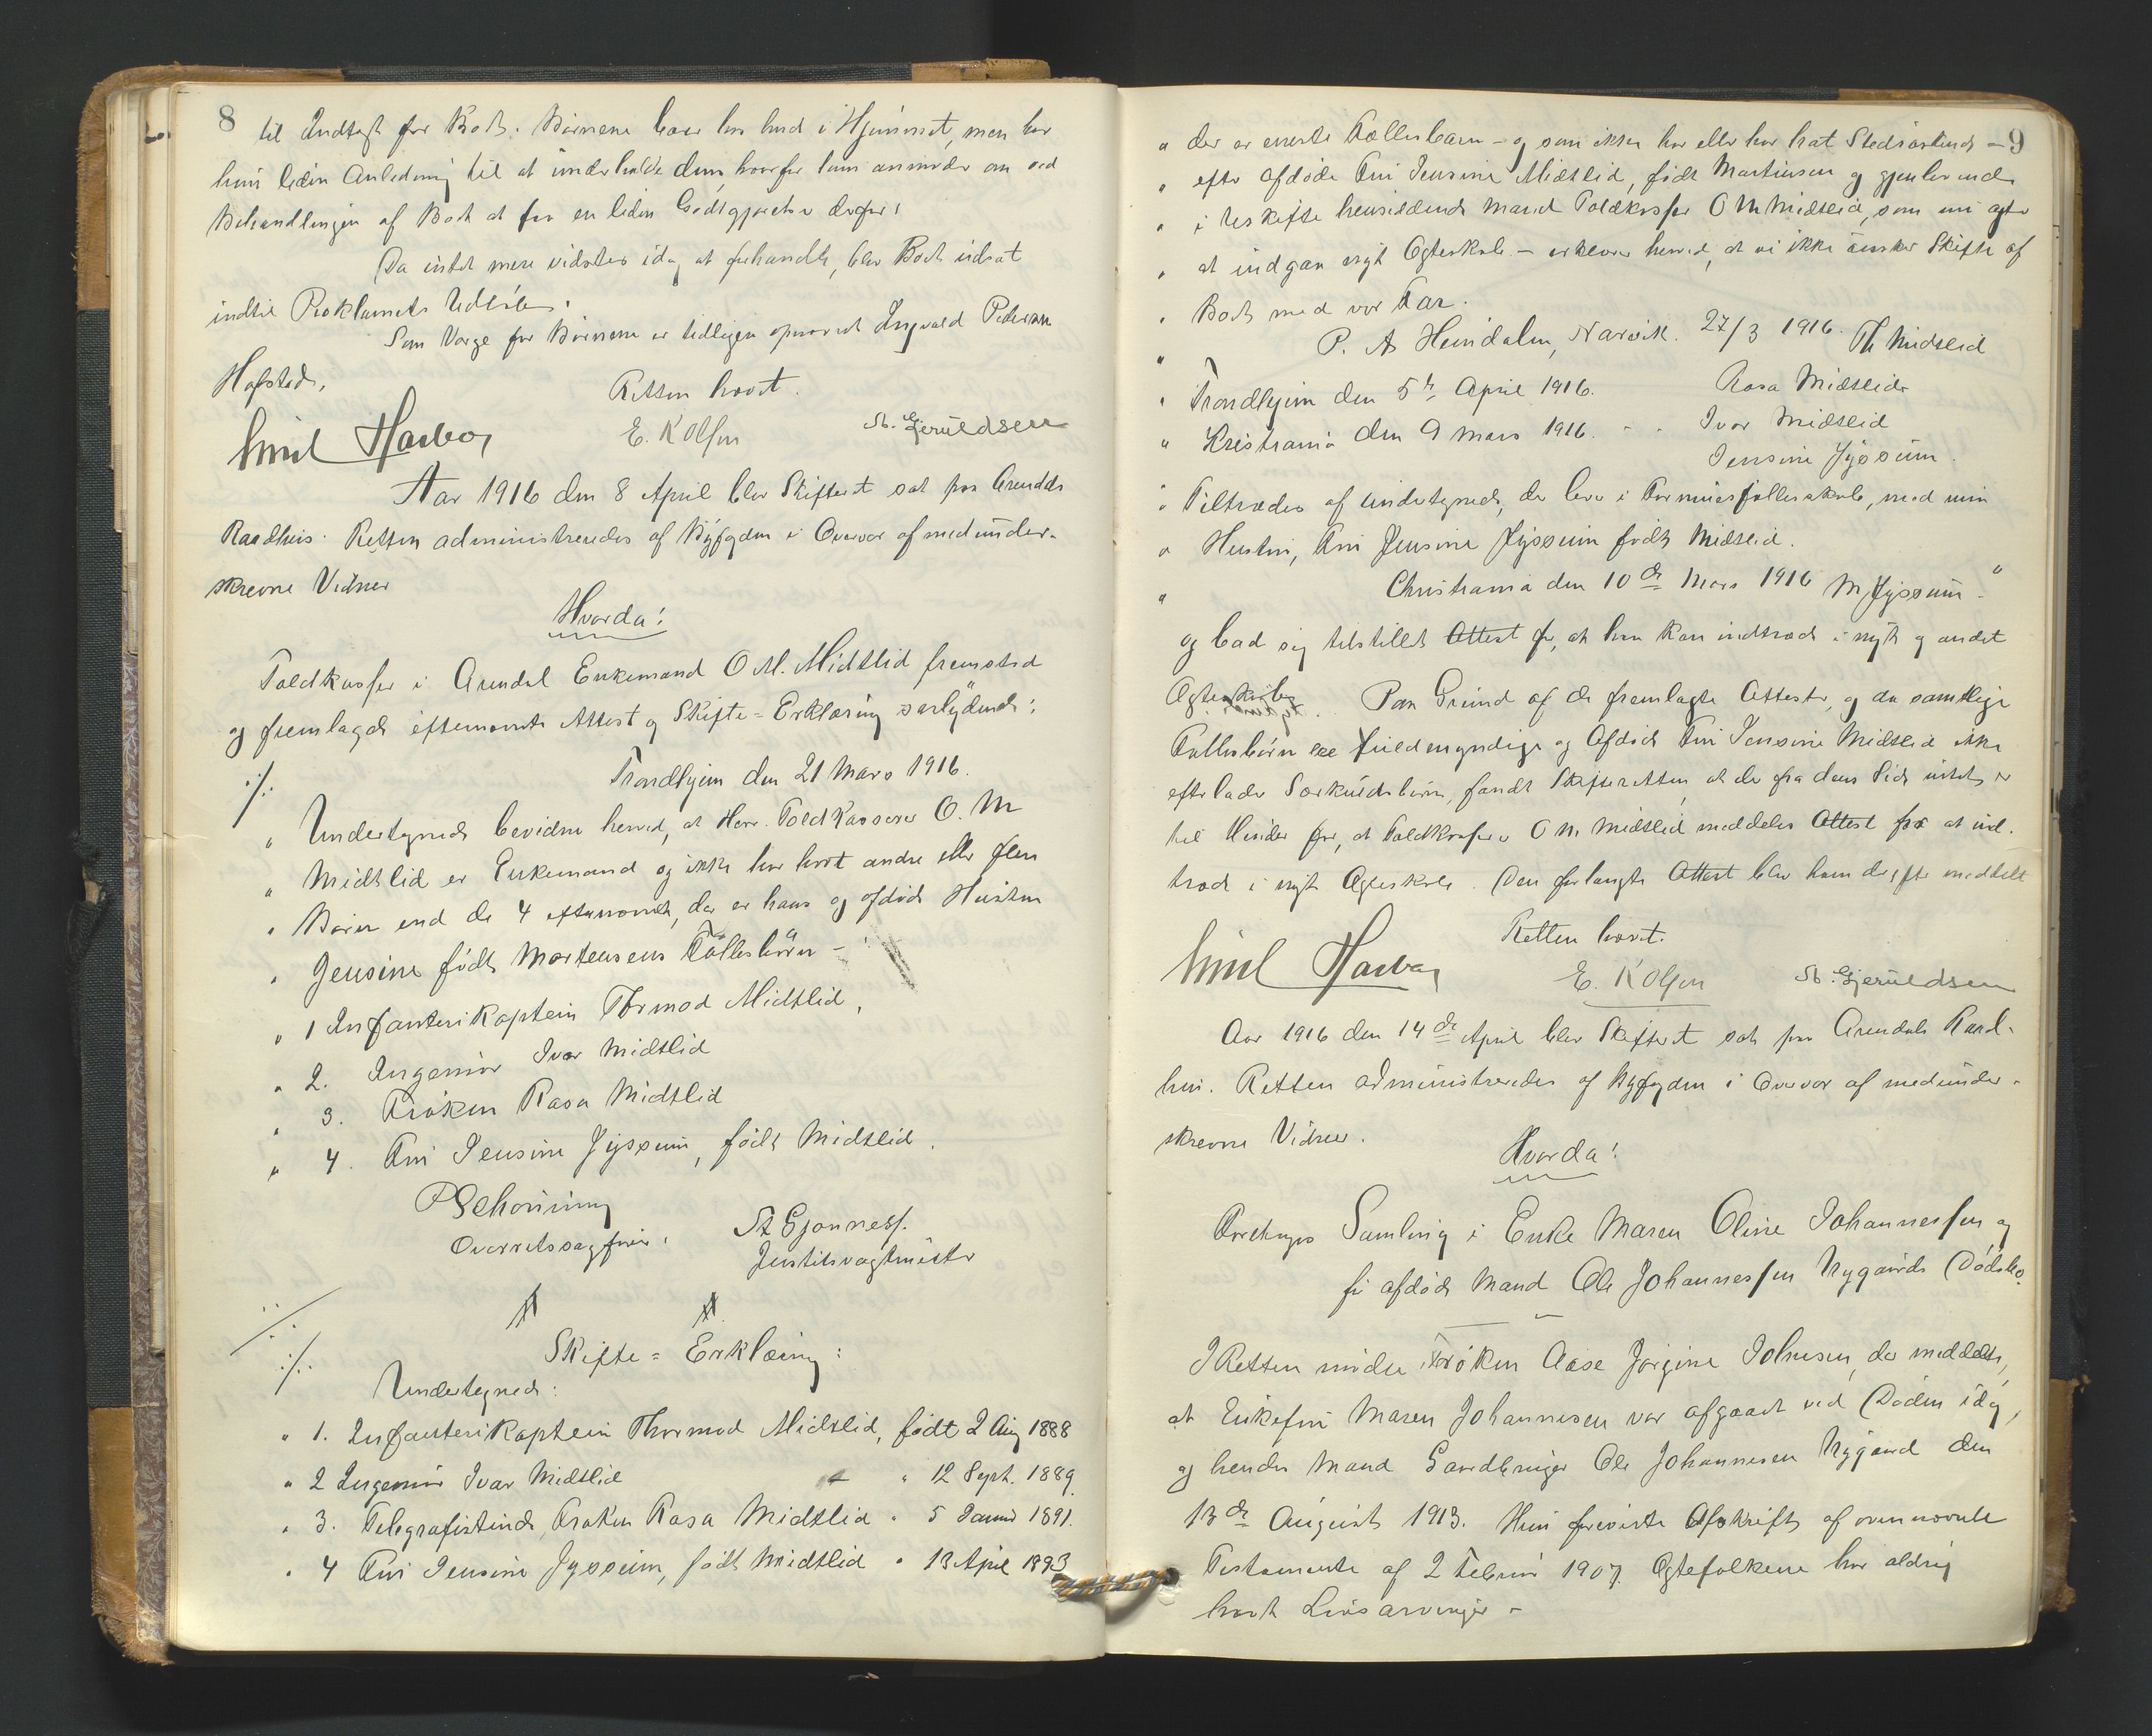 8
til Indtægt for Boet. Børnene lever hos hende i Hjemmet, men har
hun liden Anledning til at underholde dem, hvorfor hun anmoder om ved
Behandlingen af Boet at faa en liden Godtgjørelse derfor.
Da intet mere vidstes idag at forhandle, blev Boet udsat
indtil Proklamets Udløb.
Som Værge for Børnene er tidligere opnævnt Ingvald Pedersen
Hofstad.
Retten hævet.
Emil Harboe E. K Olsen St. Gjeruldsen
Aar 1916 den 8 April blev Skifteret sat paa Arendals
Raadhus. Retten administreredes af Byfogden i Overvær af medunder-
skrevne Vidner
Hvorda!
Toldkasser i Arendal Enkemand O M. Midtlid fremstod
og fremlagde eftern. Attest og Skifte-Erklæring saalydende:
./. Trondhjem den 21 Mars 1916.
" Undertegnede bevidne herved, at Herr. Toldkasserer O. M
" Midtlid er Enkemand og ikke har havt andre eller flere
" Børn end de 4 efternævnte, der er hans og afdøde Hustru
" Jensine født Mortensens Fællesbørn -
" 1 Infanterikaptein Thormod Midtlid,
" 2. Ingeniør Ivar Midtlid
" 3. Frøken Rasa Midtlid
" 4. Fru Jensine Jyssum, født Midtlid.
P Schønning
Overretssagfører. St Gjønness.
Justitsvagtmester
Skifte = Erklæring:
./. Undertegnede:
" 1. Infanterikaptein Thormod Midtlid, født 2 Aug 1888
" 2 Ingeniør Ivar Midtlid " 12 Sept. 1889.
" 3. Telegrafistinde, Frøken Rasa Midtlid " 5 Januar 1891.
" 4 Fru Jensine Jyssum, født Midtlid " 13 April 1893
9
" der er eneste Fællesbarn - og som ikke har eller har hat Stedsøskende -
" efter afdøde Fru Jensine Midtlid, født Martinsen og gjenlevende
" i uskiftet hensiddende Mand Toldkasser O M Midtlid, som nu agter
" at indgaa nyt Ægteskab - erklærer herved, at vi ikke ønsker Skifte af
" Boet med vor Far.
" P. A Heindalen, Narvik. 27/3 1916. Th Midtlid
" Trondhjem den 5te April 1916. Rasa Midtlid
" Kristiania den 9 Mars 1916. - - Ivar Midtlid
Jensine Jyssum.
" Tiltrædes af undertegnede, der lever i Formuesfællesskab, med min
" Hustru, Fru Jensine Jyssum født Midtlid.
" Christiania den 10de Mars 1916 M Jyssum "
og bad sig tilstillet Attest for, at han kan indtræde i nyt og andet
Ægteskab. Paa Grund af de fremlagte Attester, og da samtlige
Fællesbørn ere fuldmyndige og Afdøde Fru Jensine Midtlid ikke
efterlader Særkuldsbørn, fandt Skifteretten, at der fra dens Side intet er
til Hinder for, at Toldkasserer O M Midtlid meddeles Attest for at ind-
træde i nyt Ægteskab. Den forlangte Attest blev ham derefter meddelt
Retten hævet.
Emil Harboe E. K Olsen St. Gjeruldsen
Aar 1916 den 14de April blev Skifteret sat paa Arendals Raad-
hus. Retten administreredes af Byfogden i Overvær af medunder-
skrevne Vidner.
Hvorda!
Foretoges Samling i Enke Maren Oline Johannessen og
før afdøde Mand Ole Johannessen Nygaards Dødsbo.
I Retten mødte Frøken Aase Jørgine Johnsen, der meddelte,
at Enkefru Maren Johannesen var afgaaet ved Døden idag,
og hendes Mand Gaardbruger Ole Johannesen Nygaard den
13de August 1913. Hun foreviste Afskrift af ovennævnte
Testamente af 2 Februar 1907. Ægtefolkene har aldrig
havt Livsarvinger -